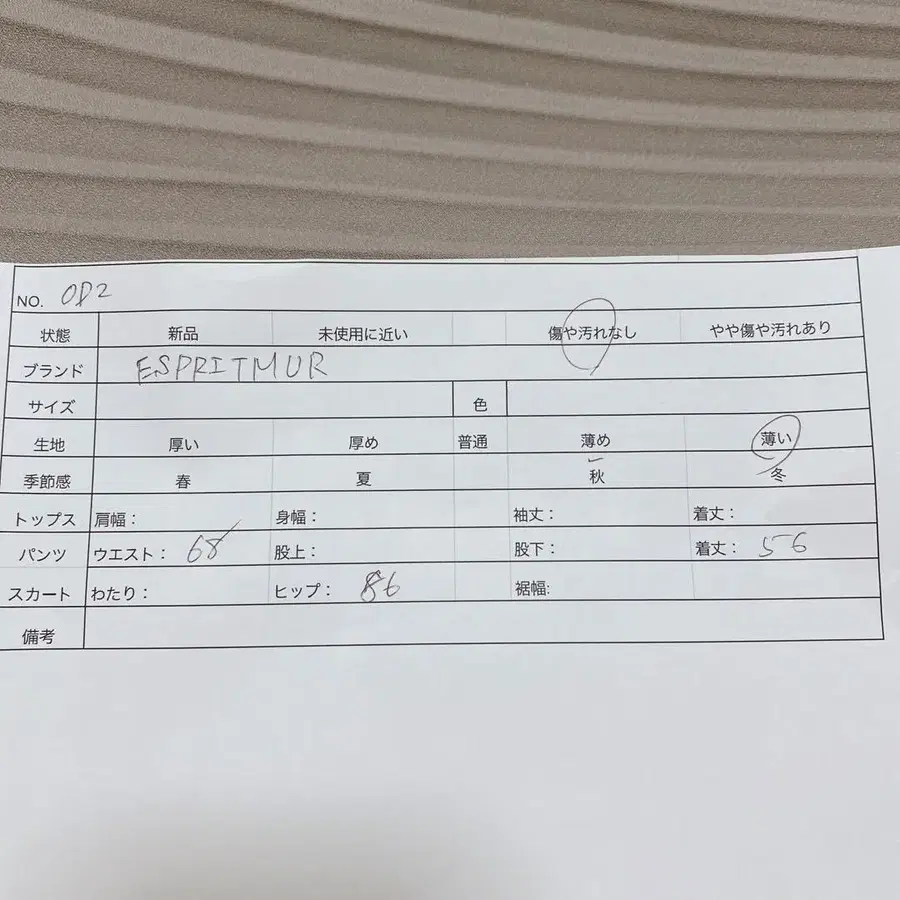 NO. OD2
状態 新品 未使用に近い 傷や汚れなし やや傷や汚れあり
ブランド ESPRITMUR
サイズ 色
生地 厚い 厚め 普通 薄め 薄い
季節感 春 夏 秋 冬
トップス 肩幅： 身幅： 袖丈： 着丈：
パンツ ウエスト： 68 股上： 股下： 着丈： 56
スカート わたり： ヒップ： 86 裾幅:
備考